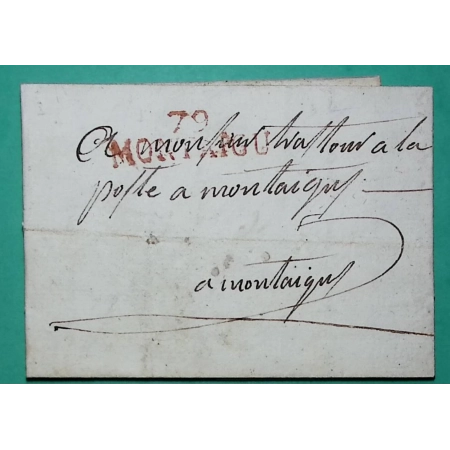 79
MONTAIGU
A monsieur trastour a la
poste a montaigu
a montaigu